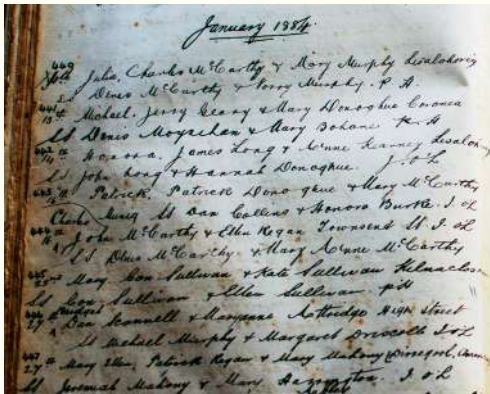 January 1884.
440
Julia, Charles McCarthy & Mary Murphy Lisalohorig
Ss Denis McCarthy & Norry Murphy. P. H
441
13th Michael, Jerry Geary & Mary Donoghue Coronea
Ss Denis Moynehan & Mary Bohane P. H
442
14 Honora, James Long & Anne Kearney Lisalohorig
Ss John Long & Hannah Donoghue. J. O L
443
Patrick, Patrick Donoghue & Mary McCarthy
Ss Dan Collins & Honora Burke. J. O L
444
John McCarthy & Ellen Regan Townsend St J. O L
Ss Denis McCarthy & Mary Anne McCarthy
445
Mary Con Sullivan & Kate Sullivan
Ss Con Sullivan & Ellen Sullivan
446 Bridget
27 Dan Connell & Maryanne High Street
Ss Michael Murphy & Margaret Driscoll J. O L
447
27th Mary Ellen, Patrick Regan & Mary Mahony
Ss Jeremiah Mahony & Mary Harrington. J. O L